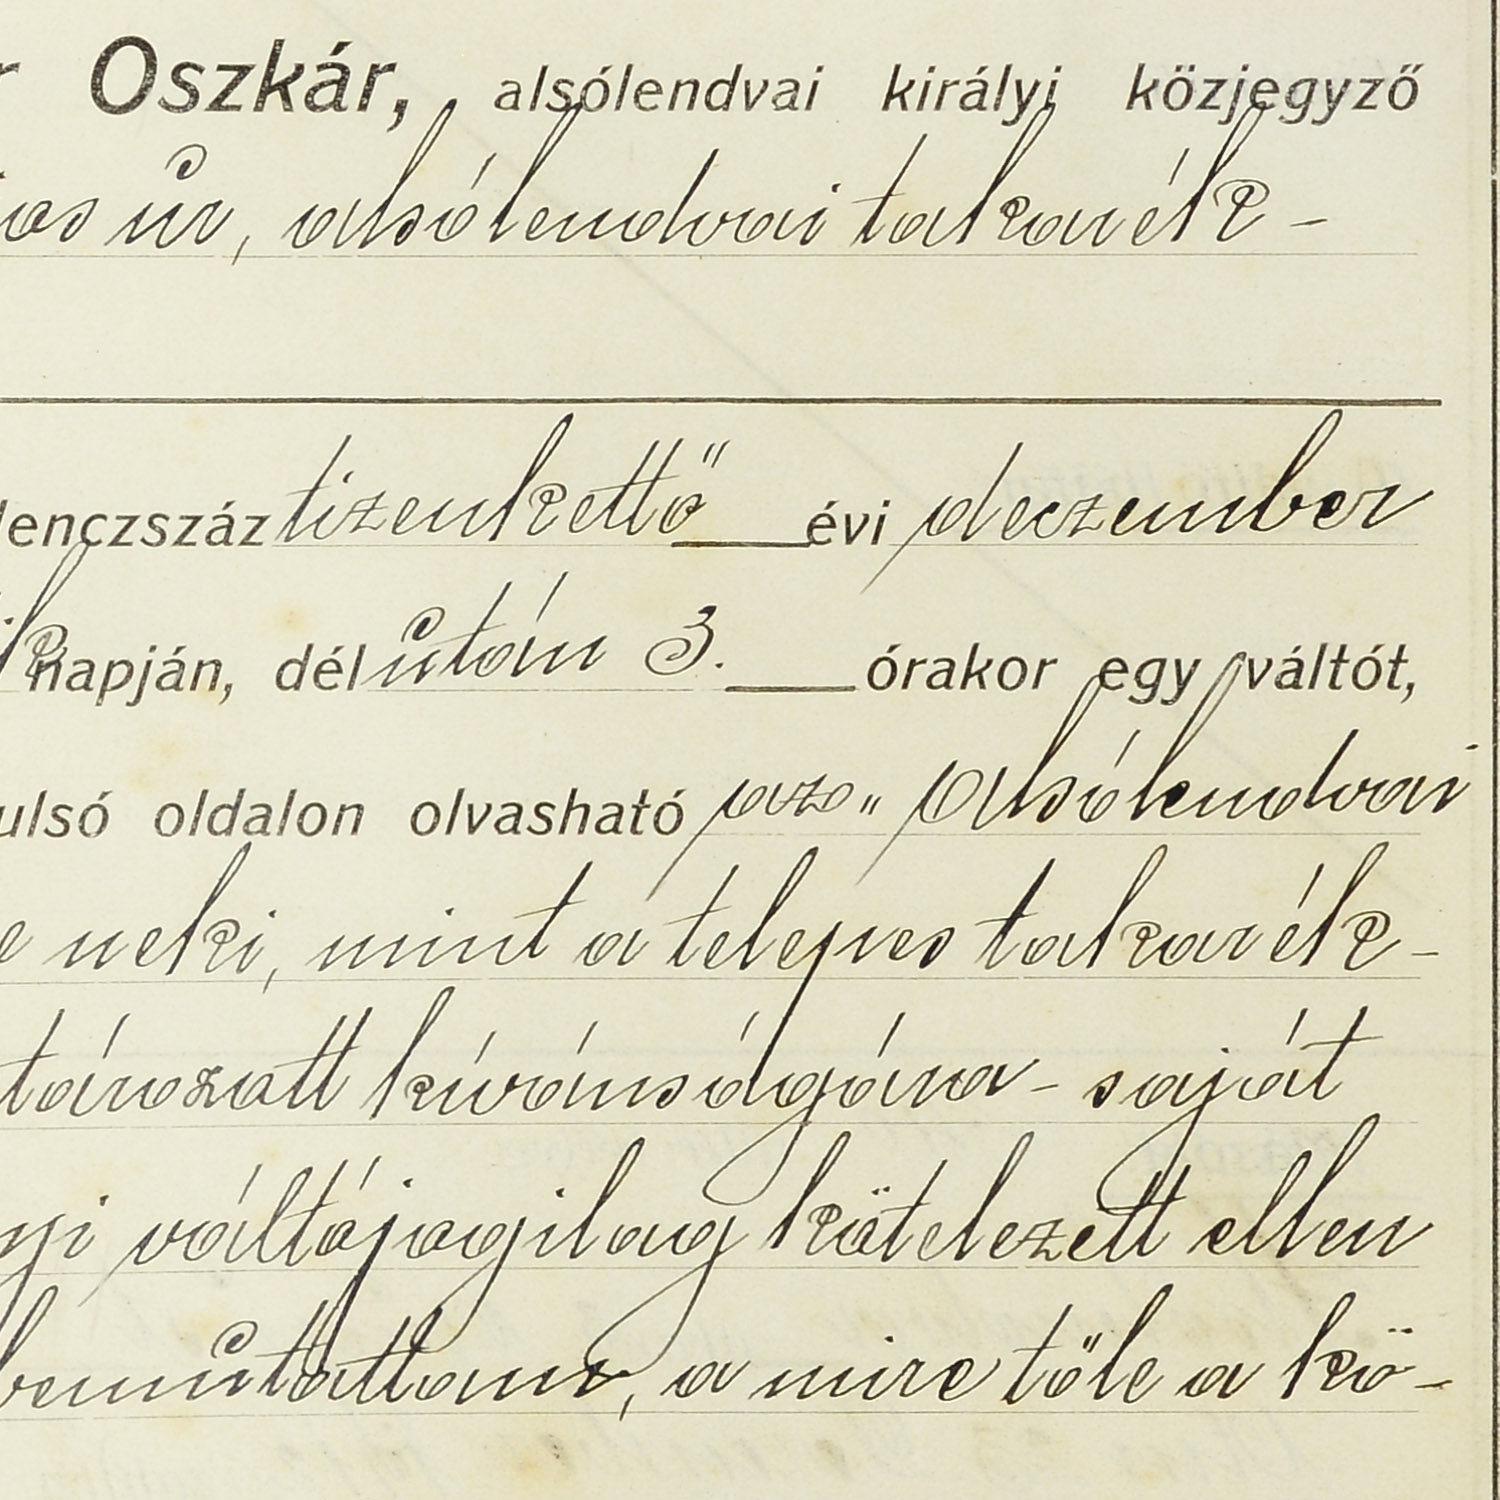 r Oszkár, alsólendvai királyi közjegyző
os úr, alsólendvai takarék-
lenczszáz tizenkettő évi deczember
ik napján, délután 3. órakor egy váltót,
ulsó oldalon olvasható az „Alsólendvai
e neki, mint a telepes takarék-
tározott kívánságára - saját
nyi váltójogilag kötelezett ellen
bemutattam, a mire tőle a kö-